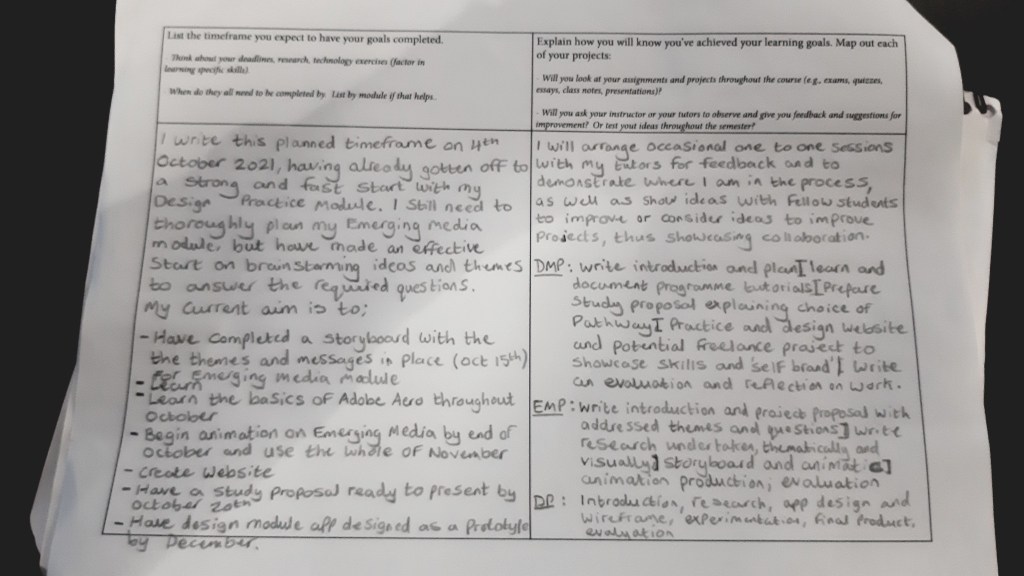 List the timeframe you expect to have your goals completed.
Think about your deadlines, research, technology exercises (factor in
learning specific skills).
When do they all need to be completed by. List by module if that helps.
Explain how you will know you've achieved your learning goals. Map out each
of your projects:
- Will you look at your assignments and projects throughout the course (e.g., exams, quizzes,
essays, class notes, presentations)?
- Will you ask your instructor or your tutors to observe and give you feedback and suggestions for
improvement? Or test your ideas throughout the semester?
I write this planned timeframe on 4th
October 2021, having already gotten off to
a strong and fast start with my
Design Practice Module. I still need to
thoroughly plan my Emerging media
module, but have made an effective
Start on brainstorming ideas and themes
to answer the required questions.
My current aim is to;
- Have completed a storyboard with the
the themes and messages in place (Oct 15th)
for Emerging media module
- Learn
- Learn the basics of Adobe Aero throughout
October
- Begin animation on Emerging Media by end of
October and use the whole of November
- Create website
- Have a study proposal ready to present by
October 20th
- Have design module app designed as a Prototype
by December.
I will arrange occasional one to one sessions
with my tutors for feedback and to
demonstrate where I am in the process,
as well as show ideas with fellow students
to improve or consider ideas to improve
projects, thus showcasing collaboration.
DMP: write introduction and plan[learn and
document programme tutorials[Prepare
Study proposal explaining choice of
Pathway[ Practice and design website
and potential freelance project to
showcase skills and 'self brand'[ write
an evaluation and reflection on work.
EMP: write introduction and project proposal with
addressed themes and questions] write
research undertaken, thematically and
visually] storyboard and animatic]
animation production; evaluation
DP: Introduction, research, app design and
wireframe, experimentation, final product,
evaluation